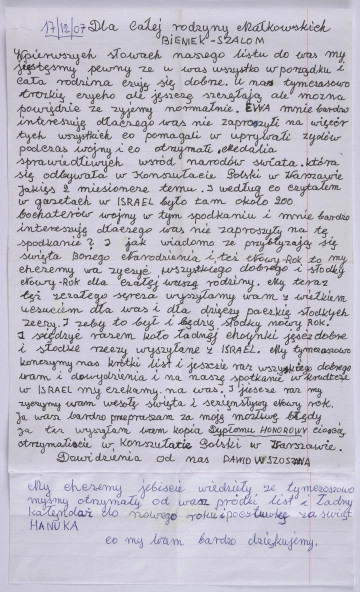 17/12/07 Dla całej rodzyny Małkowskich
BIENIEK - SZALOM
W pierwszych słowach naszego listu do was my
jestesmy pewny ze u was wszystko w porządku i
cała rodzina czują się dobrze. U nas tymczasowo
troszkię ale można
powiędzie ze zyjemy normalnie. EWA mnie bardzo
interesują dlaczego was nie zaprosyli na
tych wszystkich co pomagali w zydów
podczas wojny i co otrzymali Medalia
sprawiedliwych wsród narodów swiata. która
się odbywała w Konsulacie Polski w Warzawie
Jakięs 2 temu. I według co czytalem
w gazetach w ISRAEL było tam około 200
bochaterów wojny w tym spodkaniu i mnie bardzo
interesują dlaczego was nie zaprosyły na tę
spodkanie? I jak wiadomo ze przyblyzają się
swięta Bonego Narodzenia i tez Nowy-Rok to my
chcemy wa zyczyć wszystkiego dobrego i słodky
Nowy-Rok dla całej waszą rodziny. My teraz
tez zcałego serca wysyłamy wam z wielkiem
uczuciem dla was i dla dzięczy paczkię słodkych
rzeczy. I zeby to był i będzię słodky nowy Rok.
I siędzyć razem koło ładnej choinky jeść dobre
i słodze rzeczy wysyłane z ISRAEL. My tymczasowo
konczymy nas krótki list i jeszcie raz wszyskiego dobrego
wam i dowydzenia i na naszę spotkanie w
w ISRAEL my czekamy na was. I jeszcze raz my
zyczymy wam wesoły swięta i sczęnstlywy nowy rok.
Ja was bardzo przepraszam za mojy możlywę błędy
Ja tez wysyłam wam kopia Dyplomu HONOROWY
otrzymaliscie w Konsulacie Polski w Warzawie.
Dowidzenia od nas DAWID WSZOSZNA
My chcemy jebiscie wiedziely ze tymczosowo
myśmy otrzymały od was list i ładny
kalendaz do nowego roku i pocztuwkę za swiąt
HANUKA
co my wam bardzo dziękujemy.